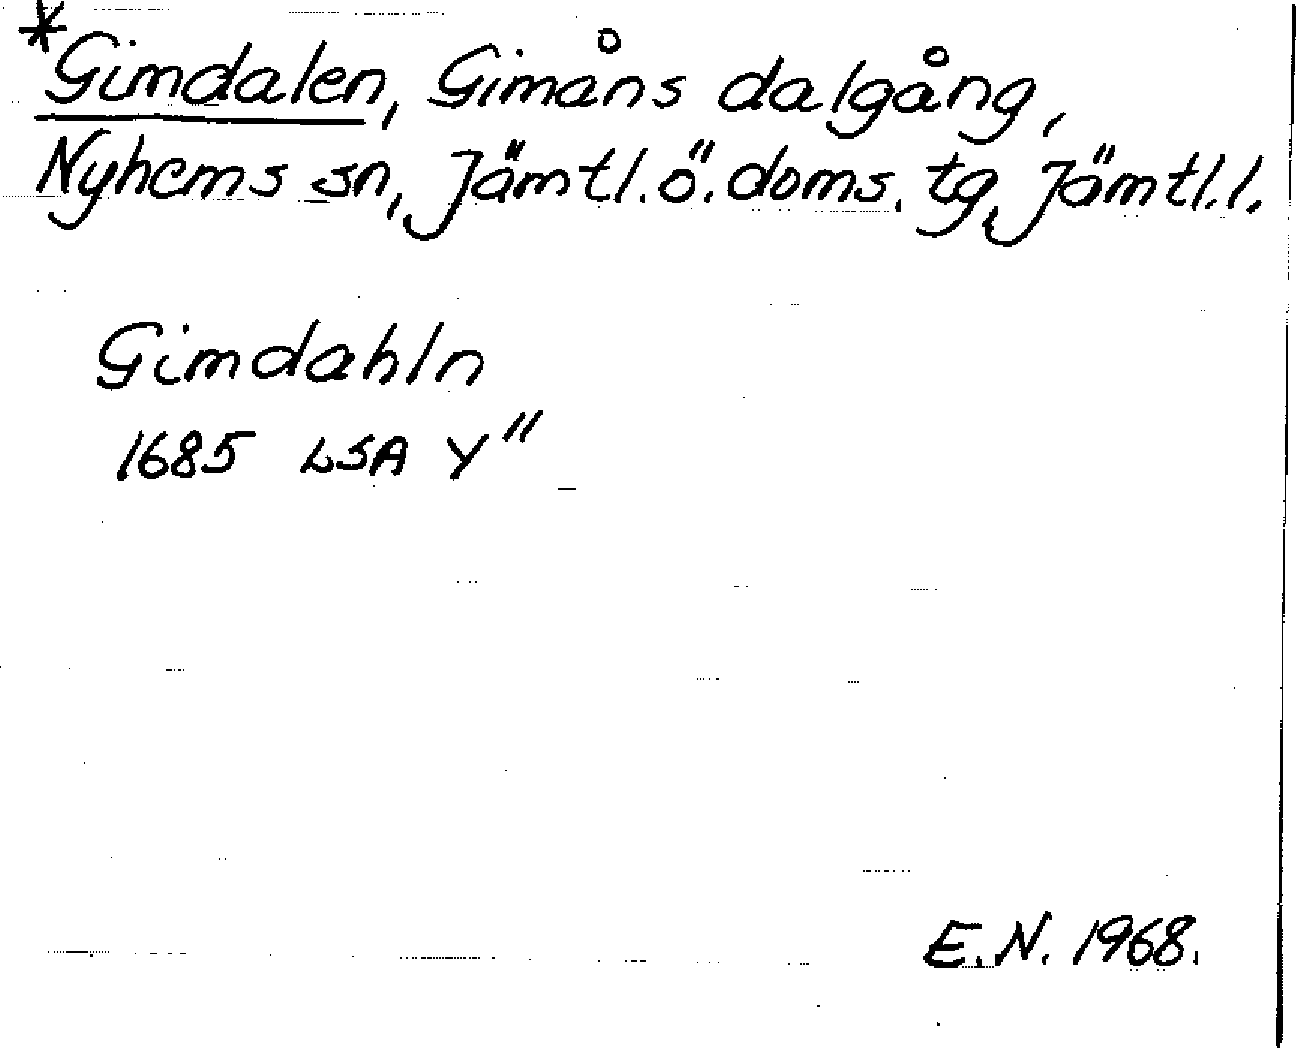 *Gimdalen, Gimåns dalgång,
Nyhems sn, Jämtl. ö. doms. tg, Jämtl. l.
Gimdahln
1685 LSA Y"
E.N. 1968.